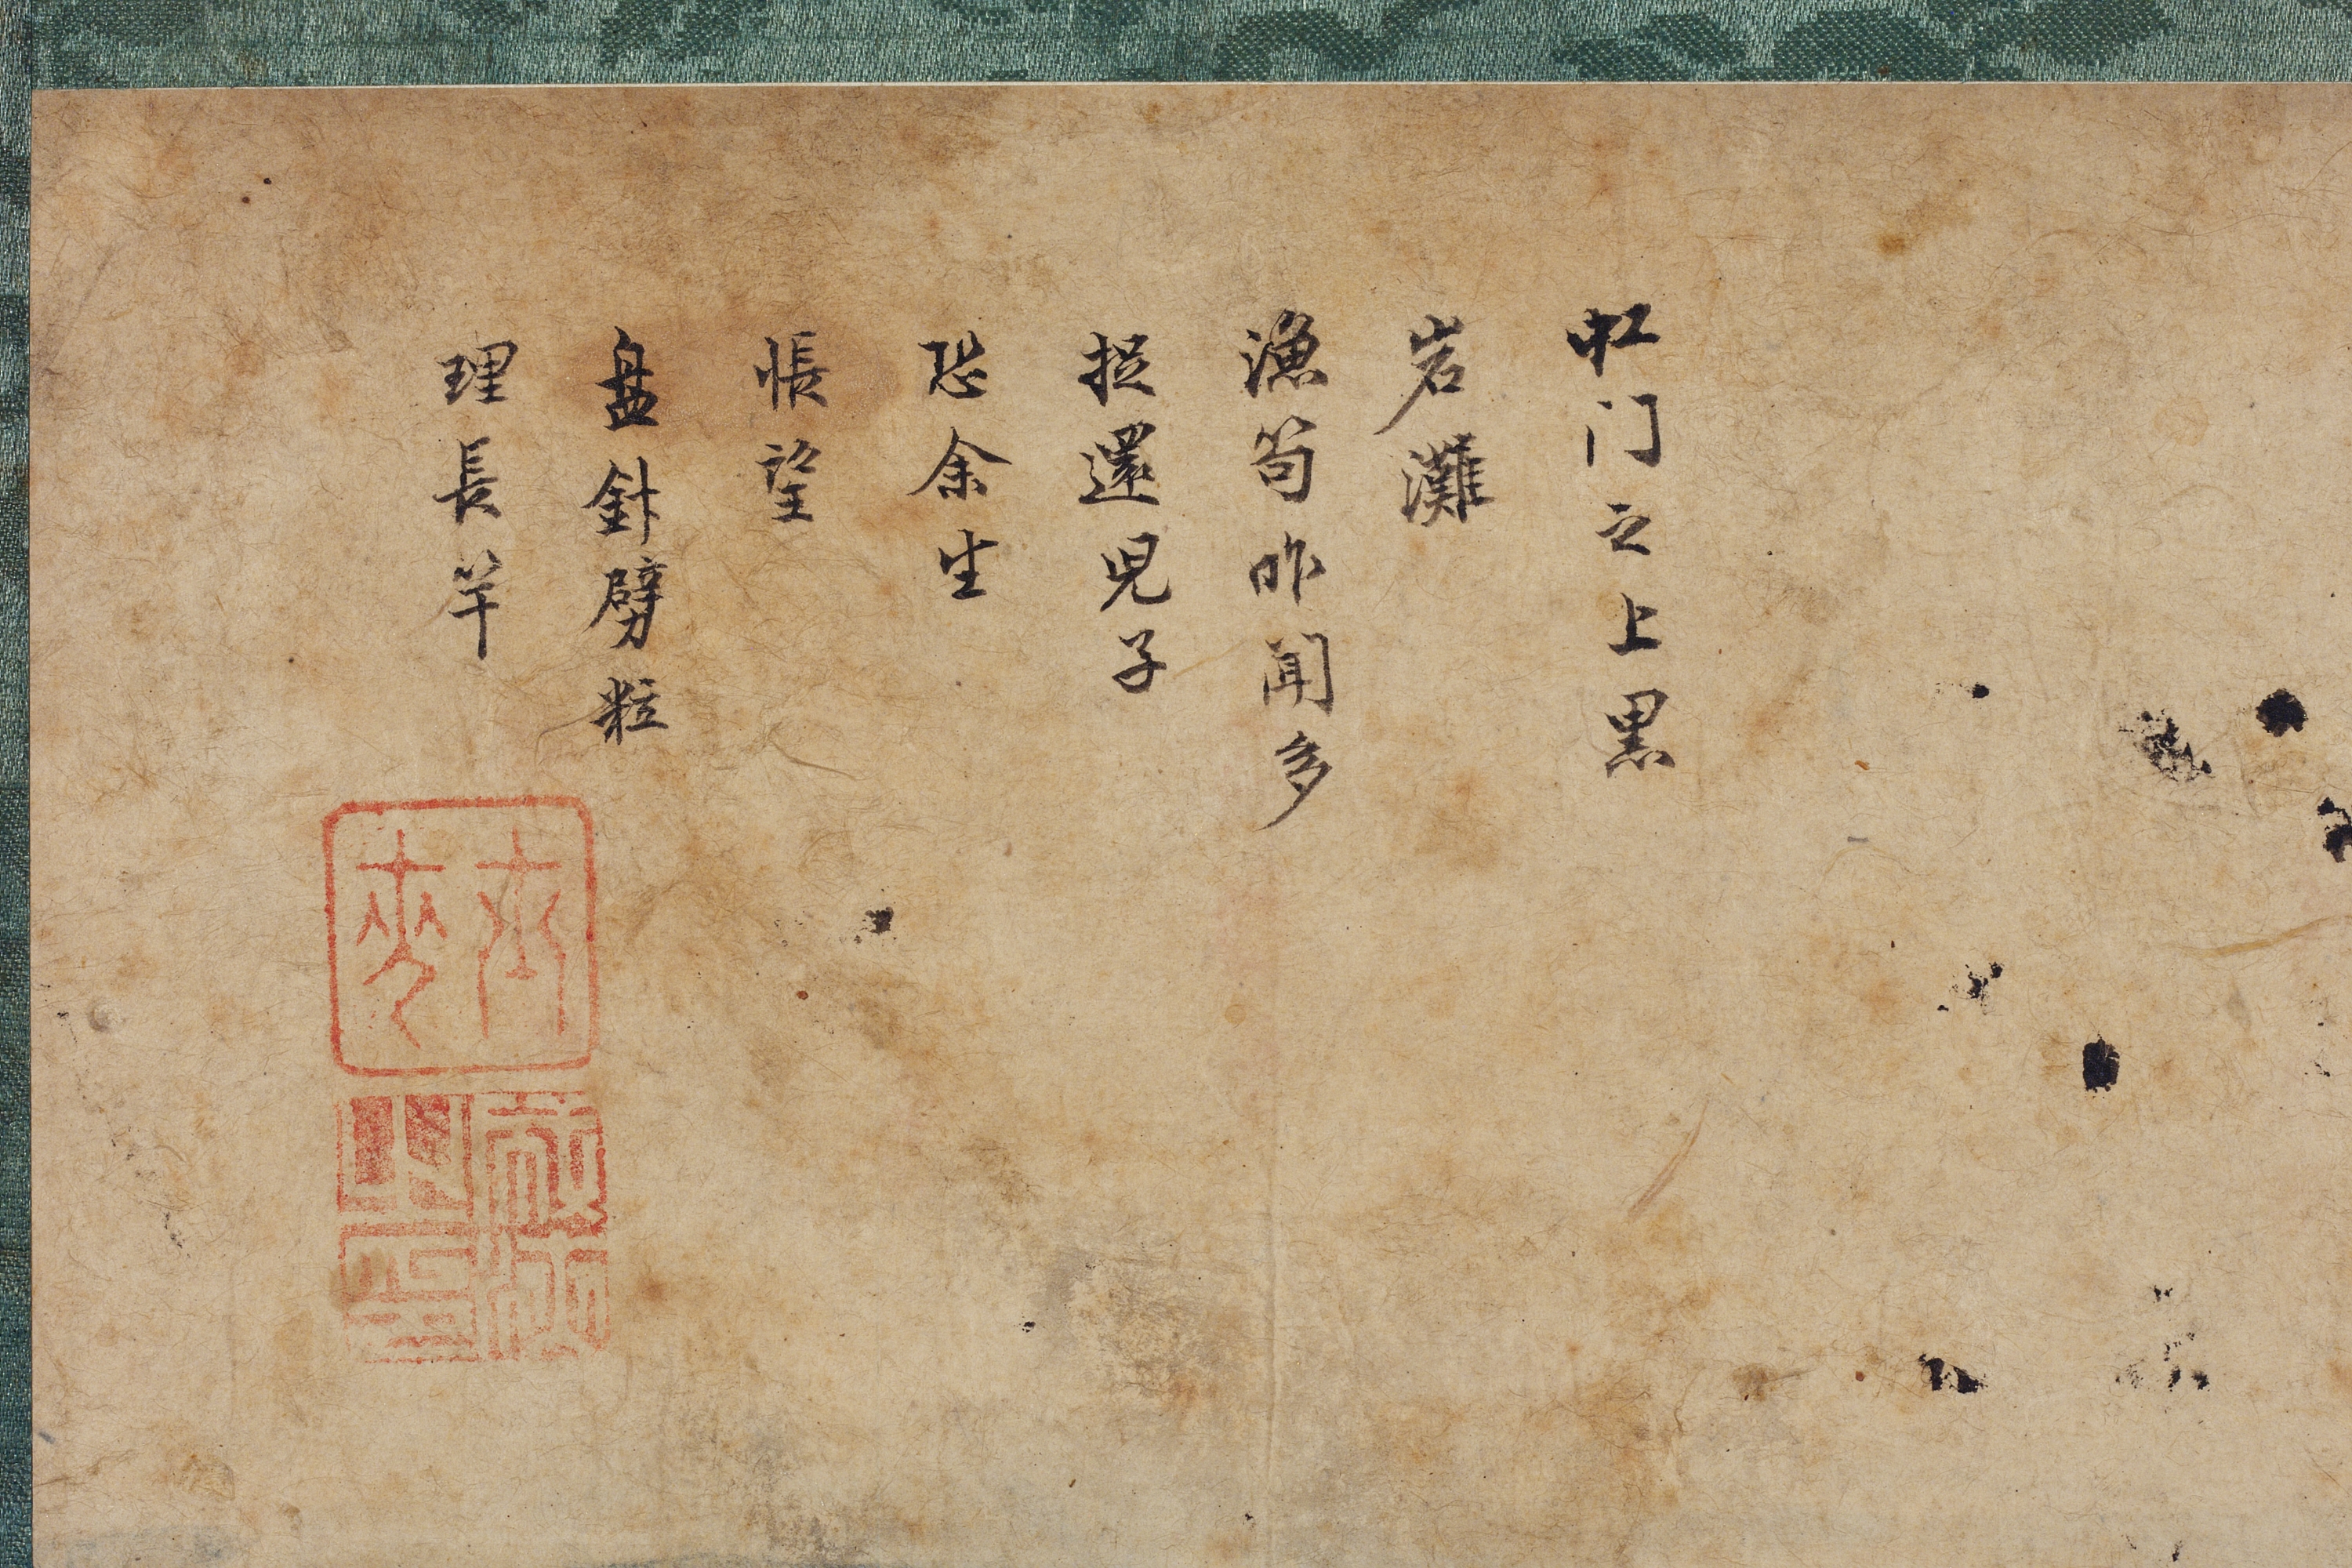 虹门之上黒
岩灘
漁笱昨闻多
捉還兒子
恐余坐
悵望
盘針劈粒
理長竿